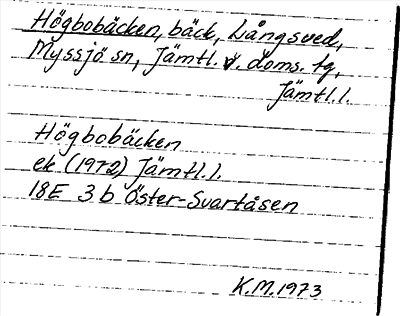 Högbobäcken, bäck, Långsved,
Myssjö sn, Jämtl. v. doms. tg,
Jämtl. l.
Högbobäcken
ek (1972) Jämtl. l.
18E 3b Öster-Svartåsen
K.M. 1973